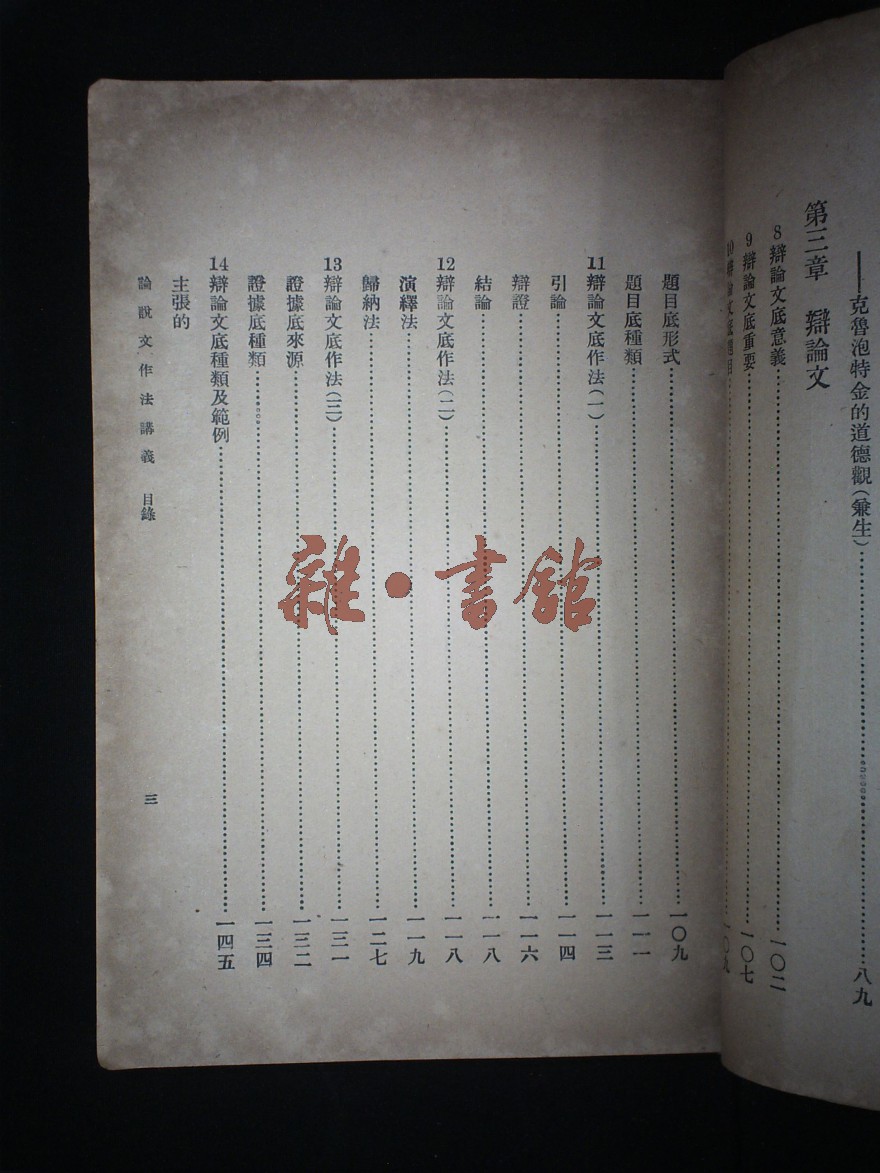 ——克魯泡特金的道德觀(兼生)……八九
第三章 辯論文
8 辯論文底意義……一〇二
9 辯論文底重要……一〇七
10 辯論文底題目……一〇九
題目底形式……一〇九
題目底種類……一一一
11 辯論文底作法(一)……一一三
引論……一一四
辯證……一一六
結論……一一八
12 辯論文底作法(二)……一一八
演繹法……一一九
歸納法……一二七
13 辯論文底作法(三)……一三一
證據底來源……一三二
證據底種類……一三四
14 辯論文底種類及範例……一四五
主張的
論說文作法講義 目錄 三
雜·書館